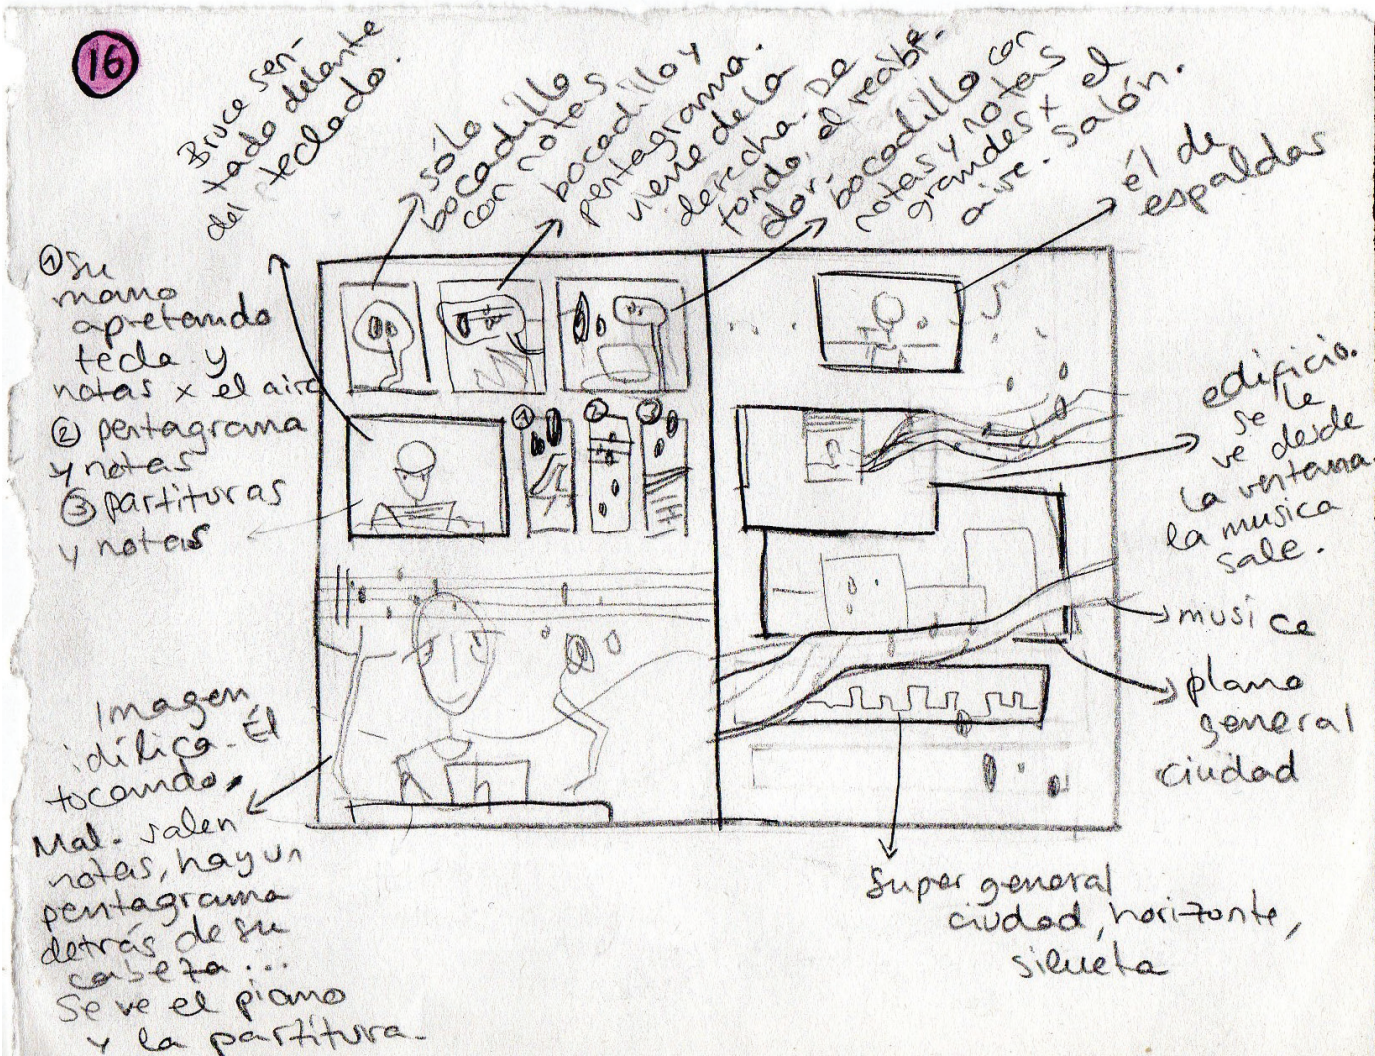 16
Bruce sen-
tado delante
del teclado.
sólo
bocadillo
con notas
bocadillo y
pentagrama.
viene de la
derecha. De
fondo, el recibi-
dor.
bocadillo con
notas y notas
grandes x el
aire. salón.
él de
espaldas
① Su
mano
apretando
tecla y
notas x el aire
② pentagrama
y notas
③ partituras
y notas
① ② ③
edificio.
se le
ve desde
la ventana.
la musica
sale.
musica
plano
general
ciudad
Imagen
idílica. Él
tocando,
Mal. salen
notas, hay un
pentagrama
detrás de su
cabeza...
Se ve el piano
y la partitura.
Super general
ciudad, horizonte,
silueta